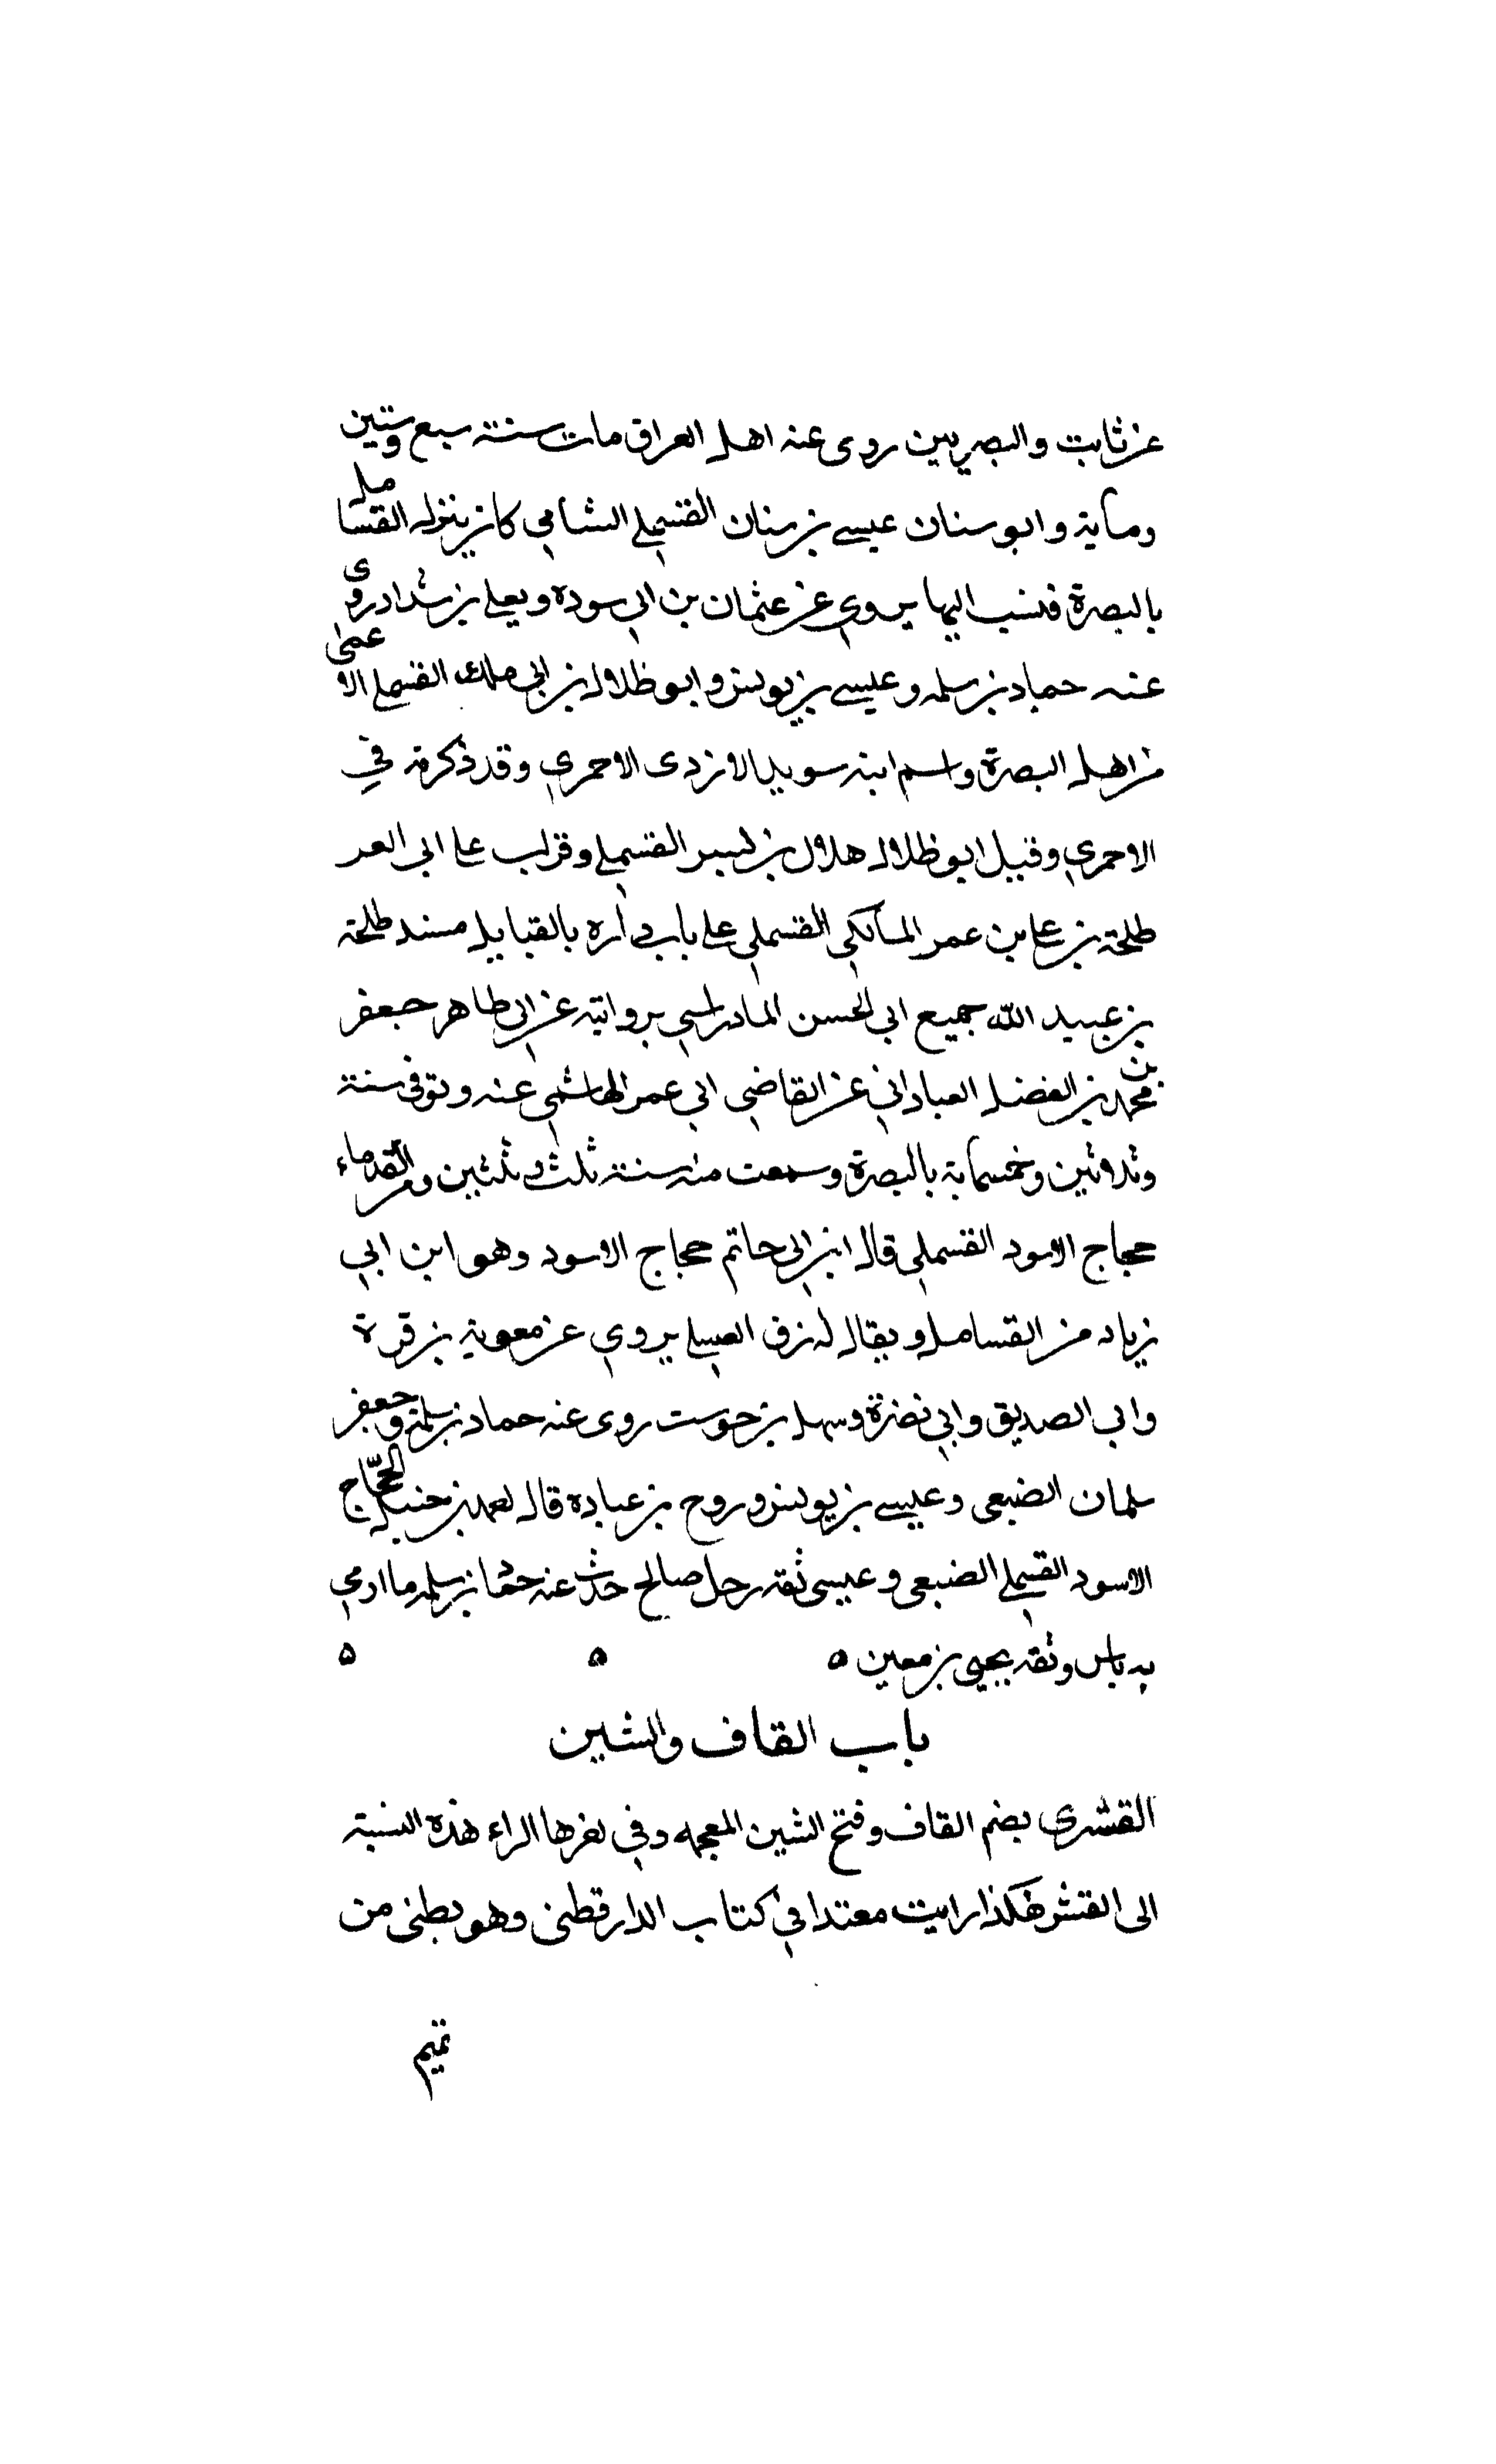 عن ثابت والبصريين روى عنه اهل العراق مات سنة سبع وستين
وماية وابو سنان عيسى بن سنان القسملي الشامي كان ينزل القسامل
بالبصرة فنسب اليها يروي عن عثمان بن ابي سوده ويعلى بن شداد روى
عنه حماد بن سلمه وعيسى بن يونس وابو ظلال بن ابي ملك القسملي الاعمى
من اهل البصرة واسم ابنه سويد الازدى الاحمري وقد ذكرته في
الاحمري وقيل ابو ظلال هلال بن بشير القسملي وقرات على ابي العز
طلحة بن علي بن عمر المالكي القسملي على باب داره بالقبايل مسند طلحة
بن عبيد الله جميع ابي الحسن المادراسي بروايته عن ابي طاهر جعفر
بن محمد بن الفضل العباداني عن القاضي ابي عمر الهاشمي عنه وتوفى سنة
وثلاثين وخمسماية بالبصرة وسمعت منه سنة ثلث وثلثين ومن القدماء
حجاج الاسود القسملي قال ابن ابي حاتم حجاج الاسود وهو ابن ابي
زياد من القسامل ويقال له زق العسل يروي عن معوية بن قرة
وابي الصديق وابي نضرة وسهل بن حوست روى عنه حماد بن سلمة وجعفر
سلمان الضبعى وعيسى بن يونس وروح بن عباده قال احمد بن حنبل الحجّاج
الاسود القسملي الضبعى وعيسى ثقه رجل صالح حدث عنه حماد بن سلمه ما ارى
به باس وثقه يحيى بن معين ه ه ه
باب القاف والشين
القشرى بضم القاف وفتح الشين المعجمه وفي اخرها الراء هذه النسبة
الى القشر هكذا رايت مقيدا في كتاب الدارقطنى وهو بطن من
تميم